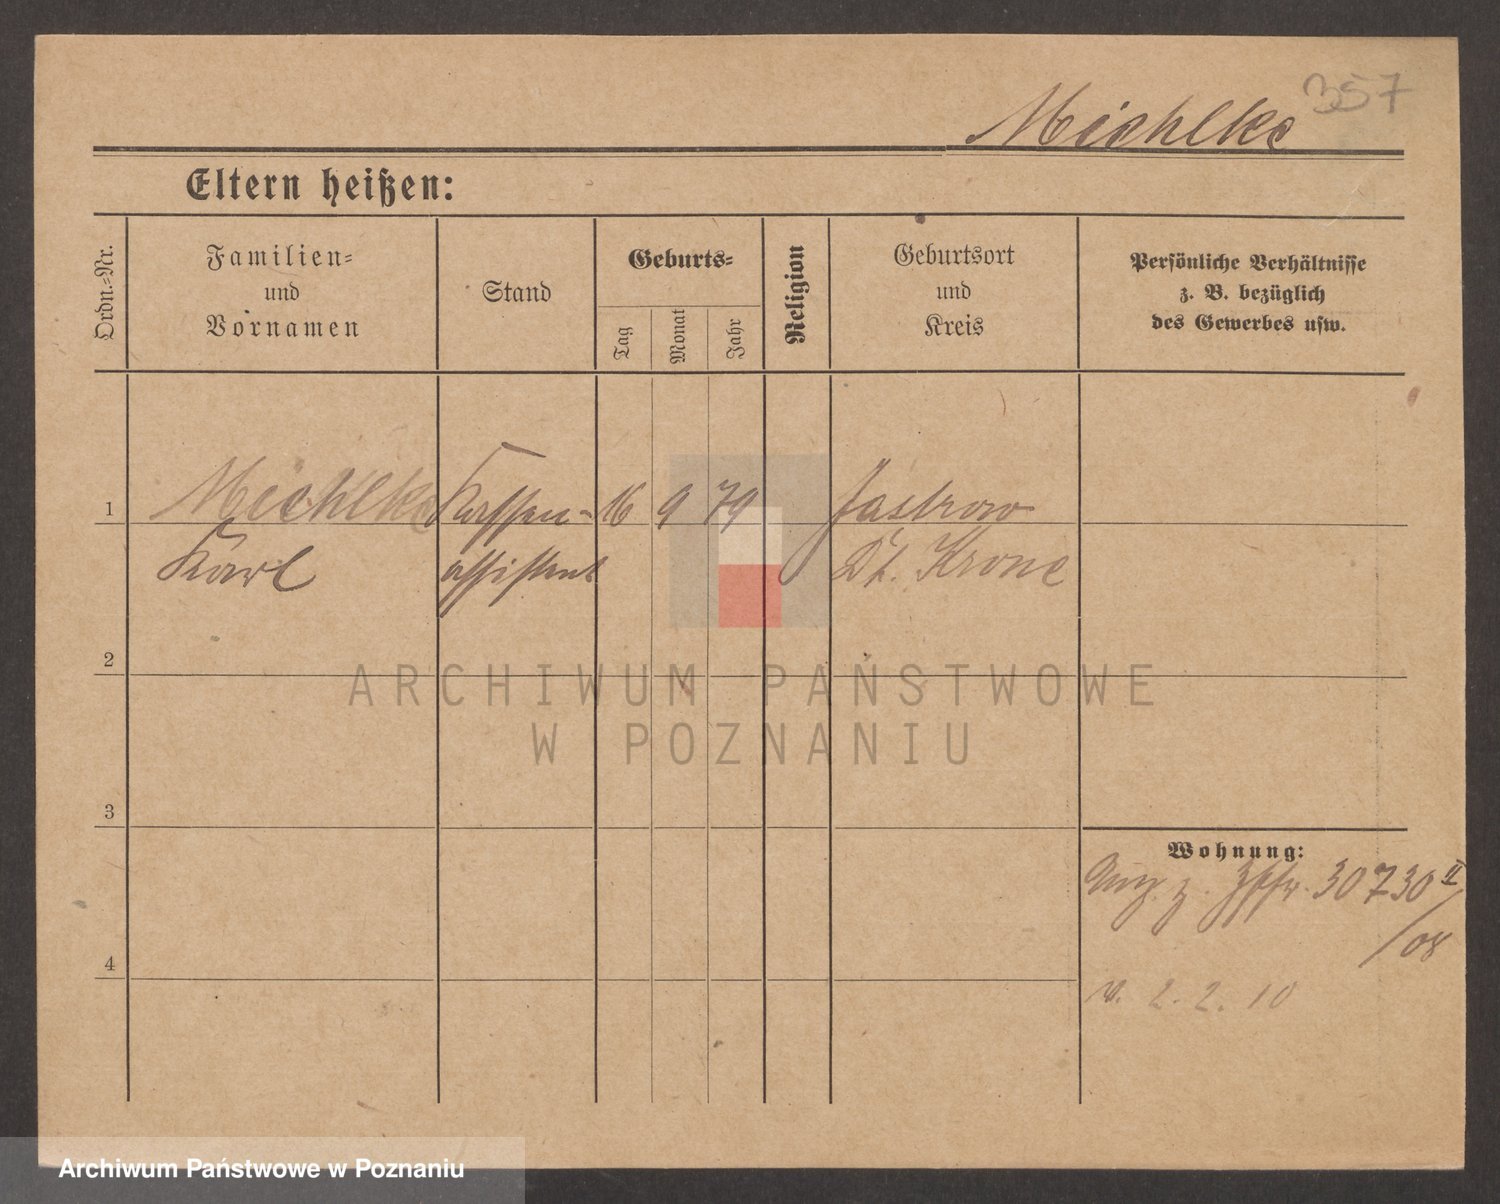 357
Michlke
Eltern heißen:
Ordn.-Nr.
Familien-
und
Vornamen
Stand
Geburts-
Tag
Monat
Jahr
Religion
Geburtsort
und
Kreis
Persönliche Verhältnisse
z. B. bezüglich
des Gewerbes usw.
1
Michlke Kassen- 16 9 79 Jastrow
Karl assistent Dt. Krone
ARCHIWUM PAŃSTWOWE
2
W POZNANIU
3
Wohnung:
30730 II
/08
4
v. 2. 2. 10
Archiwum Państwowe w Poznaniu